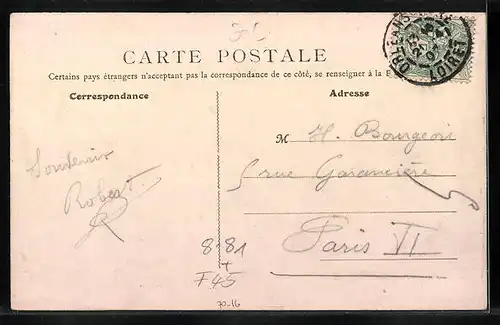 CARTE POSTALE
Certains pays étrangers n'acceptant pas la correspondance de ce côté, se renseigner à la
Correspondance
Adresse
ORLEANS
LOIRET
M H. Bourgeois
5 rue Garancière
Paris VI
Souvenir
Robert.
8-81
+
F45
70-16